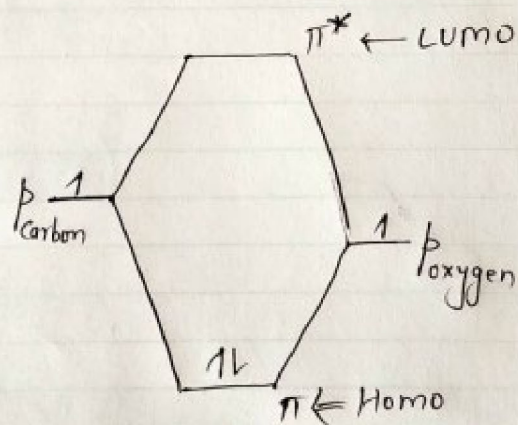 π* ← LUMO
1
p carbon
1
p oxygen
1L
π ⇐ Homo